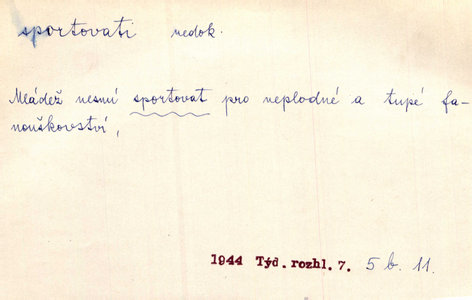 sportovati nedok.
Mládež nesmí sportovat pro neplodné a tupé fa-
nouškovství,
1944 Týd. rozhl. 7. 5 b. 11.